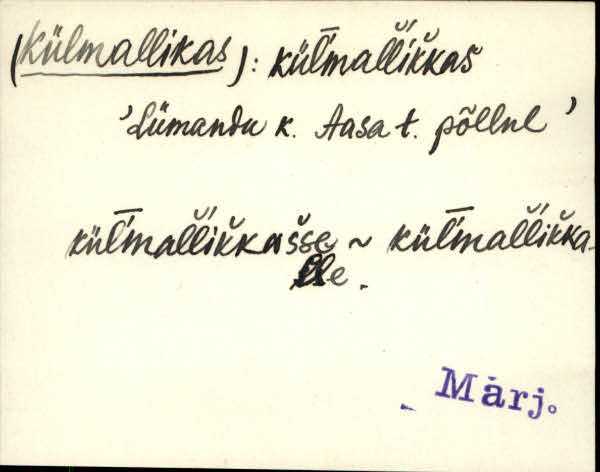 (Külmallikas): kül̄mal̆lĭk̆kas̆
'Lümandu k. Aasa t. põllul'
kül̄mal̆lĭk̆kas̆se ~ kül̄mal̆lĭk̆ka-
lle.
Märj.